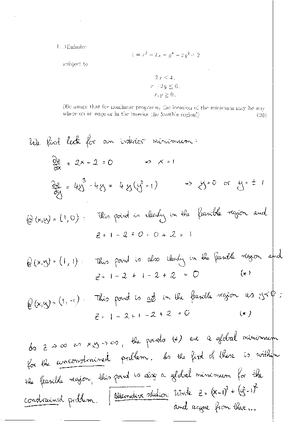 1. Minimize
z = x² - 2x + y⁴ - 2y² + 2
subject to
x, y ≥ 0.
(Be aware that for nonlinear programs, the location of the minimum may be any
where on or even in the interior the feasible region!) (20)
We first look for an interior minimum:
∂z/∂x = 2x - 2 = 0 ⇒ x = 1
∂z/∂y = 4y³ - 4y = 4y(y² - 1) ⇒ y = 0 or y = ± 1
@ (x,y) = (1,0): This point is clearly in the feasible region and
z = 1 - 2 + 0 - 0 + 2 = 1
@ (x,y) = (1,1): This point is also clearly in the feasible region and
z = 1 - 2 + 1 - 2 + 2 = 0 (*)
@ (x,y) = (1,-1): This point is not in the feasible region as y<0:
z = 1 - 2 + 1 - 2 + 2 = 0 (*)
So z → ∞ as x,y → ∞, the points (*) are a global minimum
for the unconstrained problem. As the first of these is within
the feasible region, this point is also a global minimum for the
constrained problem. Alternative solution: Write z = (x-1)² + (y²-1)²
and argue from there...